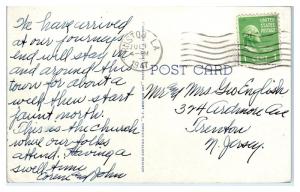 We have arrived
at our journeys
end will stay in
and around this
town for about a
week then start
jaunt north
This is the church
where our folks
attend. Having a
swell time
John
LA.
JUL
1941
UNITED STATES
POST CARD
Mr & Mrs Geo English
324 Ardmore Ave
Trenton
N. Jersey